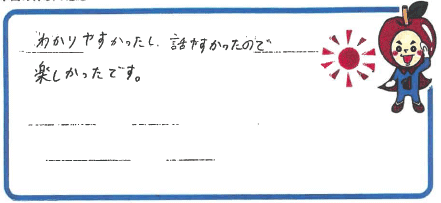 わかりやすかったし、話やすかったので
楽しかったです。